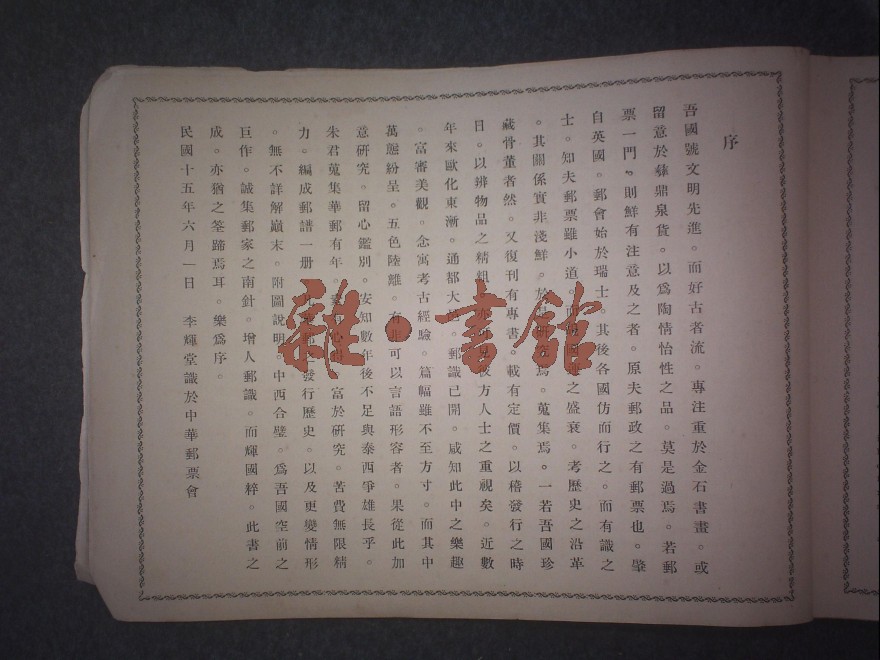 序
吾國號文明先進。而好古者流。專注重於金石書畫。或
留意於彝鼎泉貨。以爲陶情怡性之品。莫是過焉。若郵
票一門。則鮮有注意及之者。原夫郵政之有郵票也。肇
自英國。郵會始於瑞士。其後各國仿而行之。而有識之
士。知夫郵票雖小道。而 之盛衰。考歷史之沿革
。其關係實非淺鮮。於 焉。蒐集焉。一若吾國珍
藏骨董者然。又復刊有專書。載有定價。以稽發行之時
日。以辨物品之精粗。 方人士之重視矣。近數
年來歐化東漸。通都大 。郵識已開。咸知此中之樂趣
。富審美觀。念寓考古經驗。篇幅雖不至方寸。而其中
萬態紛呈。五色陸離。有非可以言語形容者。果從此加
意研究。留心鑑別。安知數年後不足與泰西爭雄長乎。
朱君蒐集華郵有年。 富於研究。苦費無限精
力。編成郵譜一册。 發行歷史。以及更變情形
。無不詳解巔末。附圖說明。中西合璧。爲吾國空前之
巨作。誠集郵家之南針。增人郵識。而輝國粹。此書之
成。亦猶之筌蹄焉耳。樂爲序。
民國十五年六月一日 李輝堂識於中華郵票會
雜·書館